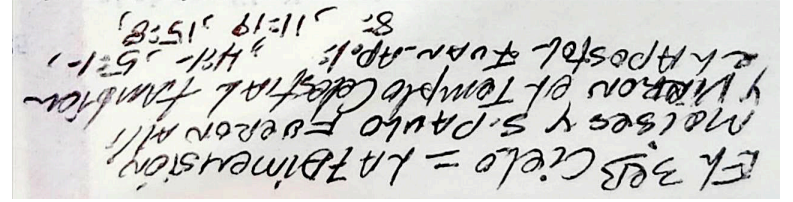 El 3er Cielo = LA 7 Dimensión
Moises y S. PAULO FUERON Alli
y VIERON el Templo Celestial tambien
el Apostol JUAN_Apoc: 4:1- ,5:1-,
8: ,11:19 ,15:8,